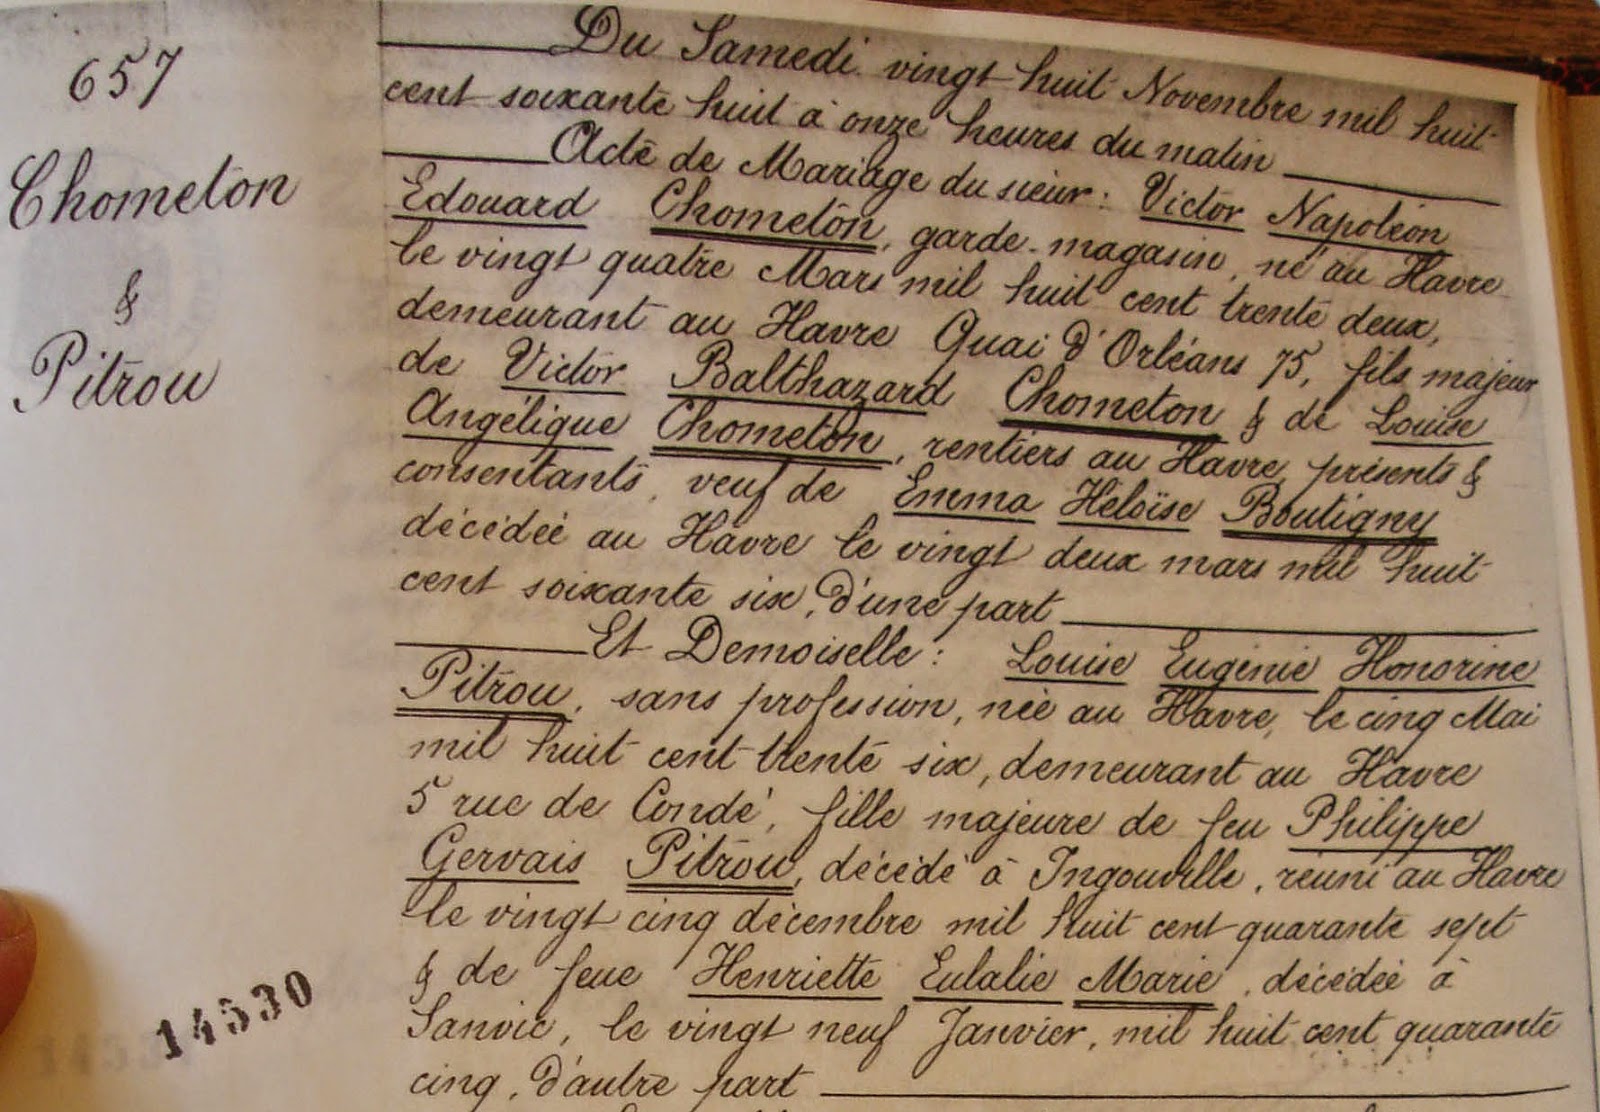 657
Chometon
&
Pitrou
14530
Du Samedi vingt huit Novembre mil huit
cent soixante huit à onze heures du matin
Acte de Mariage du sieur : Victor Napoléon
Edouard Chometon, garde-magasin, né au Havre
le vingt quatre Mars mil huit cent trente deux,
demeurant au Havre Quai d'Orléans 75, fils majeur
de Victor Balthazard Chometon & de Louise
Angélique Chometon, rentiers au Havre, présents &
consentants, veuf de Emma Héloïse Boutigny
décédée au Havre le vingt deux mars mil huit
cent soixante six, d'une part
Et Demoiselle : Louise Eugénie Honorine
Pitrou, sans profession, née au Havre, le cinq Mai
mil huit cent trente six, demeurant au Havre
5 rue de Condé, fille majeure de feu Philippe
Gervais Pitrou, décédé à Ingouville, réuni au Havre
le vingt cinq décembre mil huit cent quarante sept
& de feue Henriette Eulalie Marie, décédée à
Sanvic, le vingt neuf Janvier, mil huit cent quarante
cinq, d'autre part